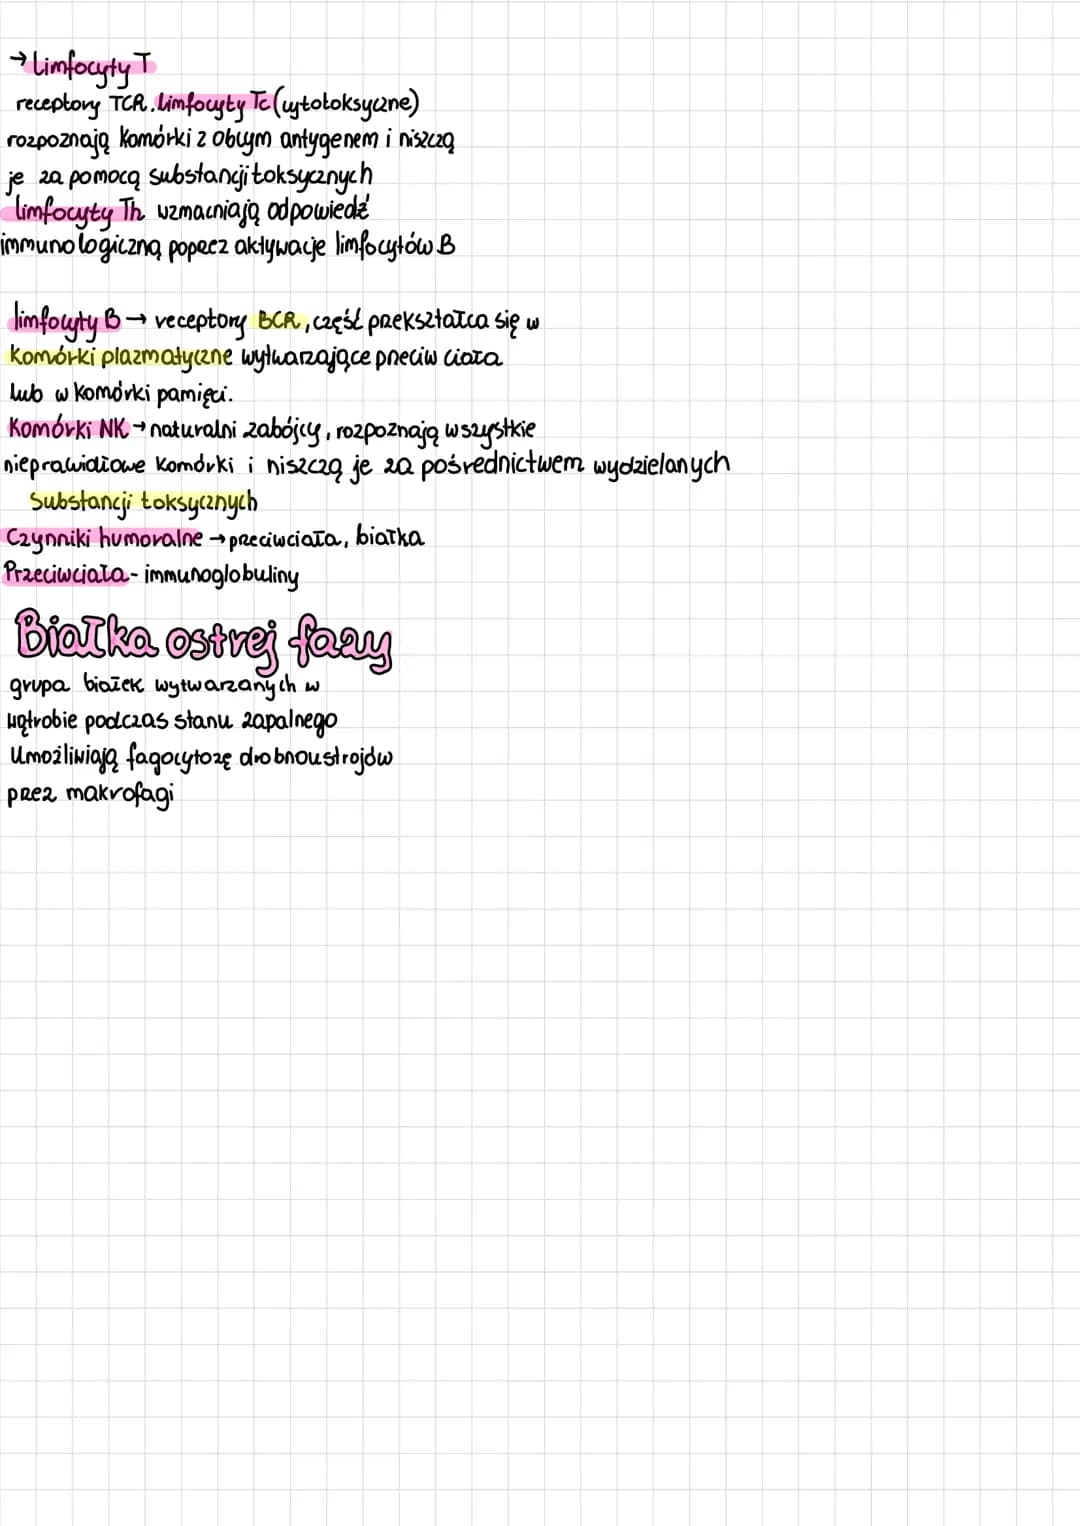 → Limfocyty T
receptory TCR. Limfocyty Tc (cytotoksyczne)
rozpoznają komórki z obcym antygenem i niszczą
je za pomocą substancji toksycznych
limfocyty Th wzmacniają odpowiedź
immunologiczną poprzez aktywacje limfocytów B
limfocyty B → receptory BCR, część przekształca się w
komórki plazmatyczne wytwarzające przeciw ciała
lub w komórki pamięci.
Komórki NK → naturalni zabójcy, rozpoznają wszystkie
nieprawidłowe komórki i niszczą je za pośrednictwem wydzielanych
Substancji toksycznych
Czynniki humoralne → przeciwciała, białka
Przeciwciała - immunoglobuliny
Białka ostrej fazy
grupa białek wytwarzanych w
wątrobie podczas stanu zapalnego
Umożliwiają fagocytozę drobnoustrojów
przez makrofagi